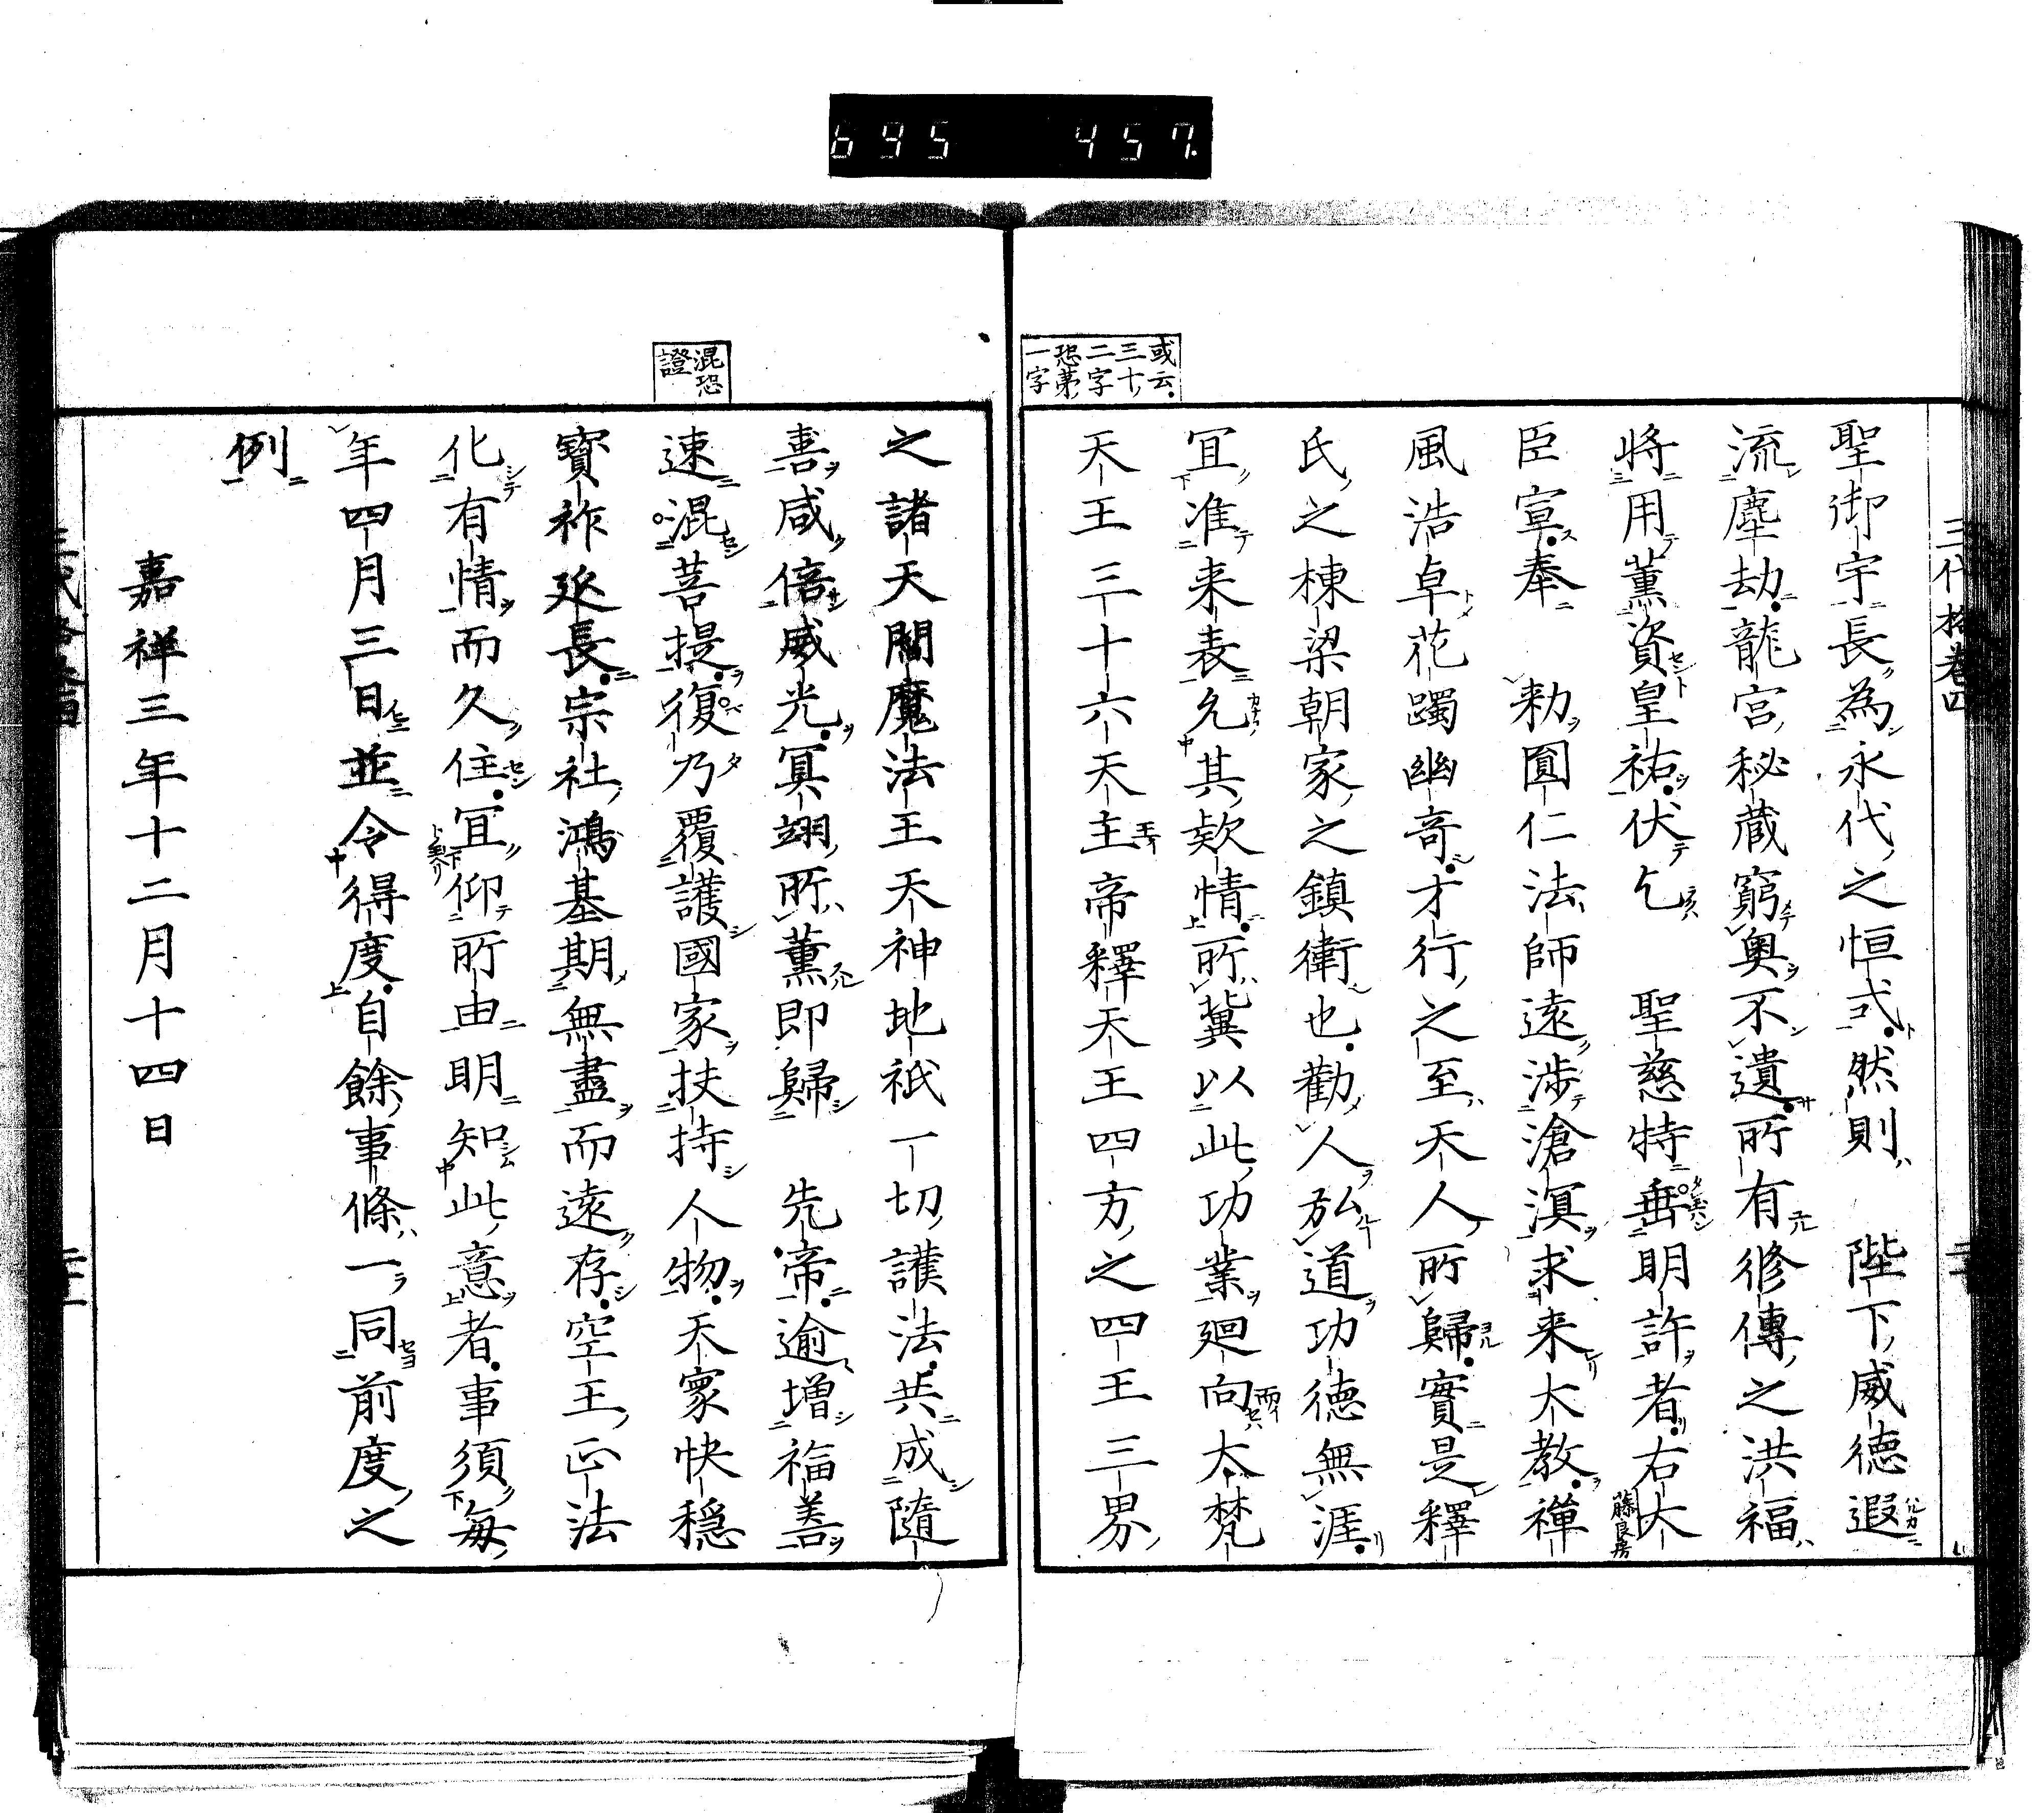 695 457
三代格卷四
聖御宇長為永代之恒式然則　陛下威德遐
流塵劫龍宮秘蔵窮奥不遺所有修傳之洪福
將用薫資皇祐伏乞　聖慈特垂明許者右大
藤良房
臣宣奉　勅圓仁法師遠渉滄溟求来大教禪
風浩卓花躅幽奇才行之至天人所歸實是釋
氏之棟梁朝家之鎮衛也勸人弘道功德無涯
宜准来表允其欵情所冀以此功業廻向大梵
天王三十六天主帝釋天王四方之四王三界
或云
三十
二字
恐第
一字
之諸天閻魔法王天神地祇一切護法共成隨
喜咸倍威光冥翊所薫即歸　先帝逾増福善
速混菩提復乃覆護國家扶持人物天寰快穏
混恐
證
寶祚延長宗社鴻基期無盡而遠存空王正法
化有情而久住宜仰所由明知此意者事須毎
年四月三日並令得度自餘事條一同前度之
例
嘉祥三年十二月十四日